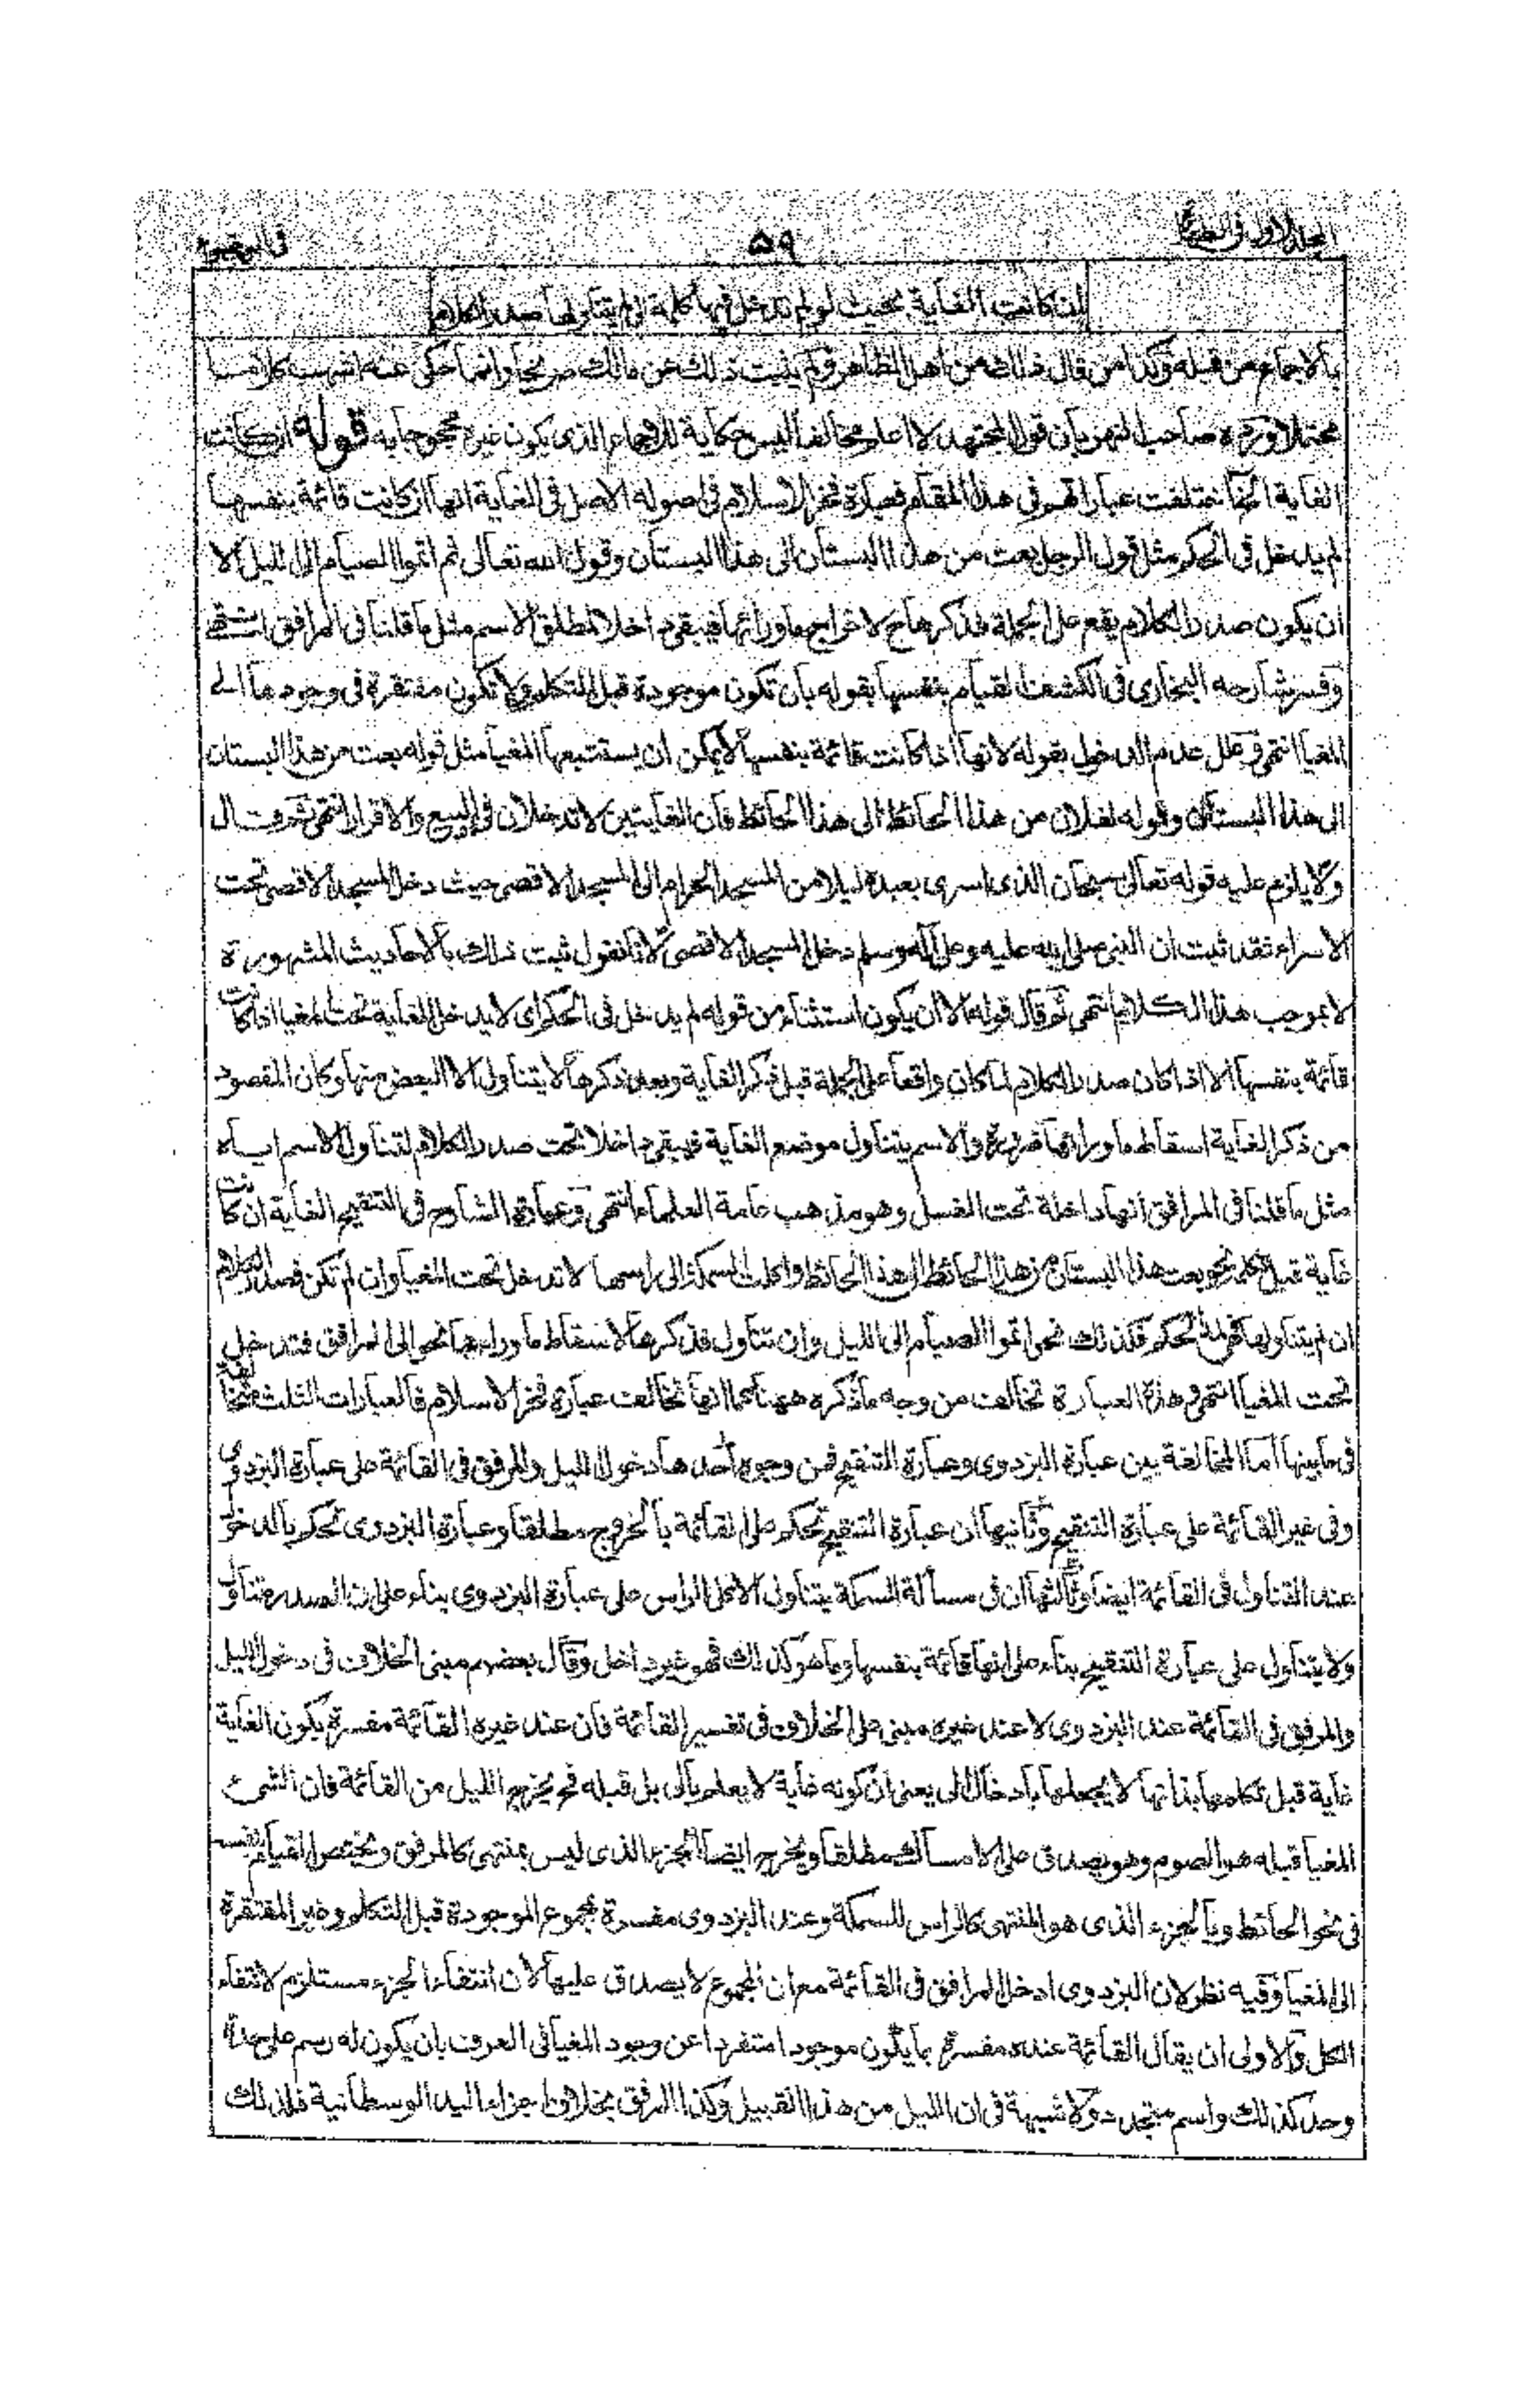 المجلد الاول فى الطهارة
٥٩
ان كانت الغاية بحيث لو لم تدخل فيها كلمة الى لم يتناولها صدر الكلام
بالاجماع من قبله وكذا من قال ذلك من اهل الظاهر ولم يثبت ذلك عن مالك صريحا وانما حكى عنه اشهب كلاما
محتملا ورده صاحب النهر بان قول المجتهد لا اعلم مخالفا ليس حكاية للاجماع الذى يكون غيره محجوجا به قوله ان كانت
الغاية الخ اختلفت عباراتهم فى هذا المقام فعبارة فخر الاسلام فى اصوله الاصل فى الغاية انها ان كانت قائمة بنفسها
لم يدخل فى الحكم مثل قول الرجل بعت من هذا البستان الى هذا البستان وقول الله تعالى ثم اتموا الصيام الى الليل الا
ان يكون صدر الكلام يقع على الجملة فذكرها ح لاخراج ما ورائها فيبقى داخلا لمطلق الاسم مثل ما قلنا فى المرافق انتهى
وفسر شارحه البخارى فى الكشف القيام بنفسها بقوله بان تكون موجودة قبل التكلم ولا تكون مفتقرة فى وجودها الى
المغيا انتهى وعلل عدم الدخول بقوله لانها اذا كانت قائمة بنفسها لا يمكن ان يستتبعها المغيا مثل قوله بعت من هذا البستان
الى هذا البستان وقوله لفلان من هذا الحائط الى هذا الحائط فان الغايتين لا تدخلان فى البيع والاقرار انتهى ثم قال
ولا يلزم عليه قوله تعالى سبحان الذى اسرى بعبده ليلا من المسجد الحرام الى المسجد الاقصى حيث دخل المسجد الاقصى تحت
الاسراء فقد ثبت ان النبى صلى الله عليه وعلى آله وسلم دخل المسجد الاقصى لانا نقول ثبت ذلك بالاحاديث المشهورة
لا بموجب هذا الكلام انتهى ثم قال قوله الا ان يكون استثناء من قوله لم يدخل فى الحكم اى لا يدخل الغاية تحت المغيا اذا كانت
قائمة بنفسها الا اذا كان صدر الكلام لما كان واقعا على الجملة قبل ذكر الغاية وبعد ذكرها لا يتناول الا البعض منها وكان المقصود
من ذكر الغاية اسقاط ما ورائها ضرورة والاسم يتناول موضع الغاية فيبقى داخلا تحت صدر الكلام لتناول الاسم اياه
مثل ما قلنا فى المرافق انها داخلة تحت الغسل وهو مذهب عامة العلماء انتهى وعبارة الشارح فى التنقيح الغاية ان كانت
غاية قبل تكلمه نحو بعت هذا البستان من هذا الحائط الى هذا الحائط واكلت السمكة الى راسها لا تدخل تحت المغيا وان لم تكن فصدر الكلام
ان لم يتناولها فهى لمد الحكم فكذلك نحو اتموا الصيام الى الليل وان تناول فذكرها لاسقاط ما وراءها نحو الى المرافق فتدخل
تحت المغيا انتهى وهذه العبارة تخالف من وجه ما ذكره ههنا كما انها تخالف عبارة فخر الاسلام فالعبارات الثلث مختلفة
فى ما بينها اما المخالفة بين عبارة البزدوى وعبارة التنقيح فمن وجوه احدها دخول الليل والمرفق فى القائمة على عبارة البزدوى
وفى غير القائمة على عبارة التنقيح وثانيها ان عبارة التنقيح تحكم على القائمة بالخروج مطلقا وعبارة البزدوى تحكم بالدخول
عند التناول فى القائمة ايضا وثالثها ان فى مسألة السمكة يتناول الاكل الراس على عبارة البزدوى بناء على ان الصدر متناول
ولا يتناول على عبارة التنقيح بناء على انها قائمة بنفسها وما هو كذلك فهو غير داخل وقال بعضهم مبنى الخلاف فى دخول الليل
والمرفق فى القائمة عند البزدوى لا عند غيره مبنى على الخلاف فى تفسير القائمة فان عند غيره القائمة مفسرة بكون الغاية
غاية قبل تكلمها بذاتها لا بجعلها بادخال الى يعنى ان كونه غاية لا يعلم بالى بل قبله فح يخرج الليل من القائمة فان الشئ
المغيا قبله هو الصوم وهو يصدق على الامساك مطلقا ويخرج ايضا الجزء الذى ليس بمنتهى كالمرفق ويختص القيام بنفسه
فى نحو الحائط وبالجزء الذى هو المنتهى كالراس للسمكة وعند البزدوى مفسرة بمجموع الموجودة قبل التكلم وغير المفتقرة
الى المغيا وفيه نظر لان البزدوى ادخل المرافق فى القائمة مع ان المجموع لا يصدق عليها لان انتفاء الجزء مستلزم لانتفاء
الكل والاولى ان يقال القائمة عنده مفسرة بما يكون موجودا متفردا عن وجود المغيا فى العرف بان يكون له رسم على حدة
وحد كذلك واسم متجدد ولا شبهة فى ان الليل من هذا القبيل وكذا المرفق بخلاف اجزاء اليد الوسطانية فلذلك